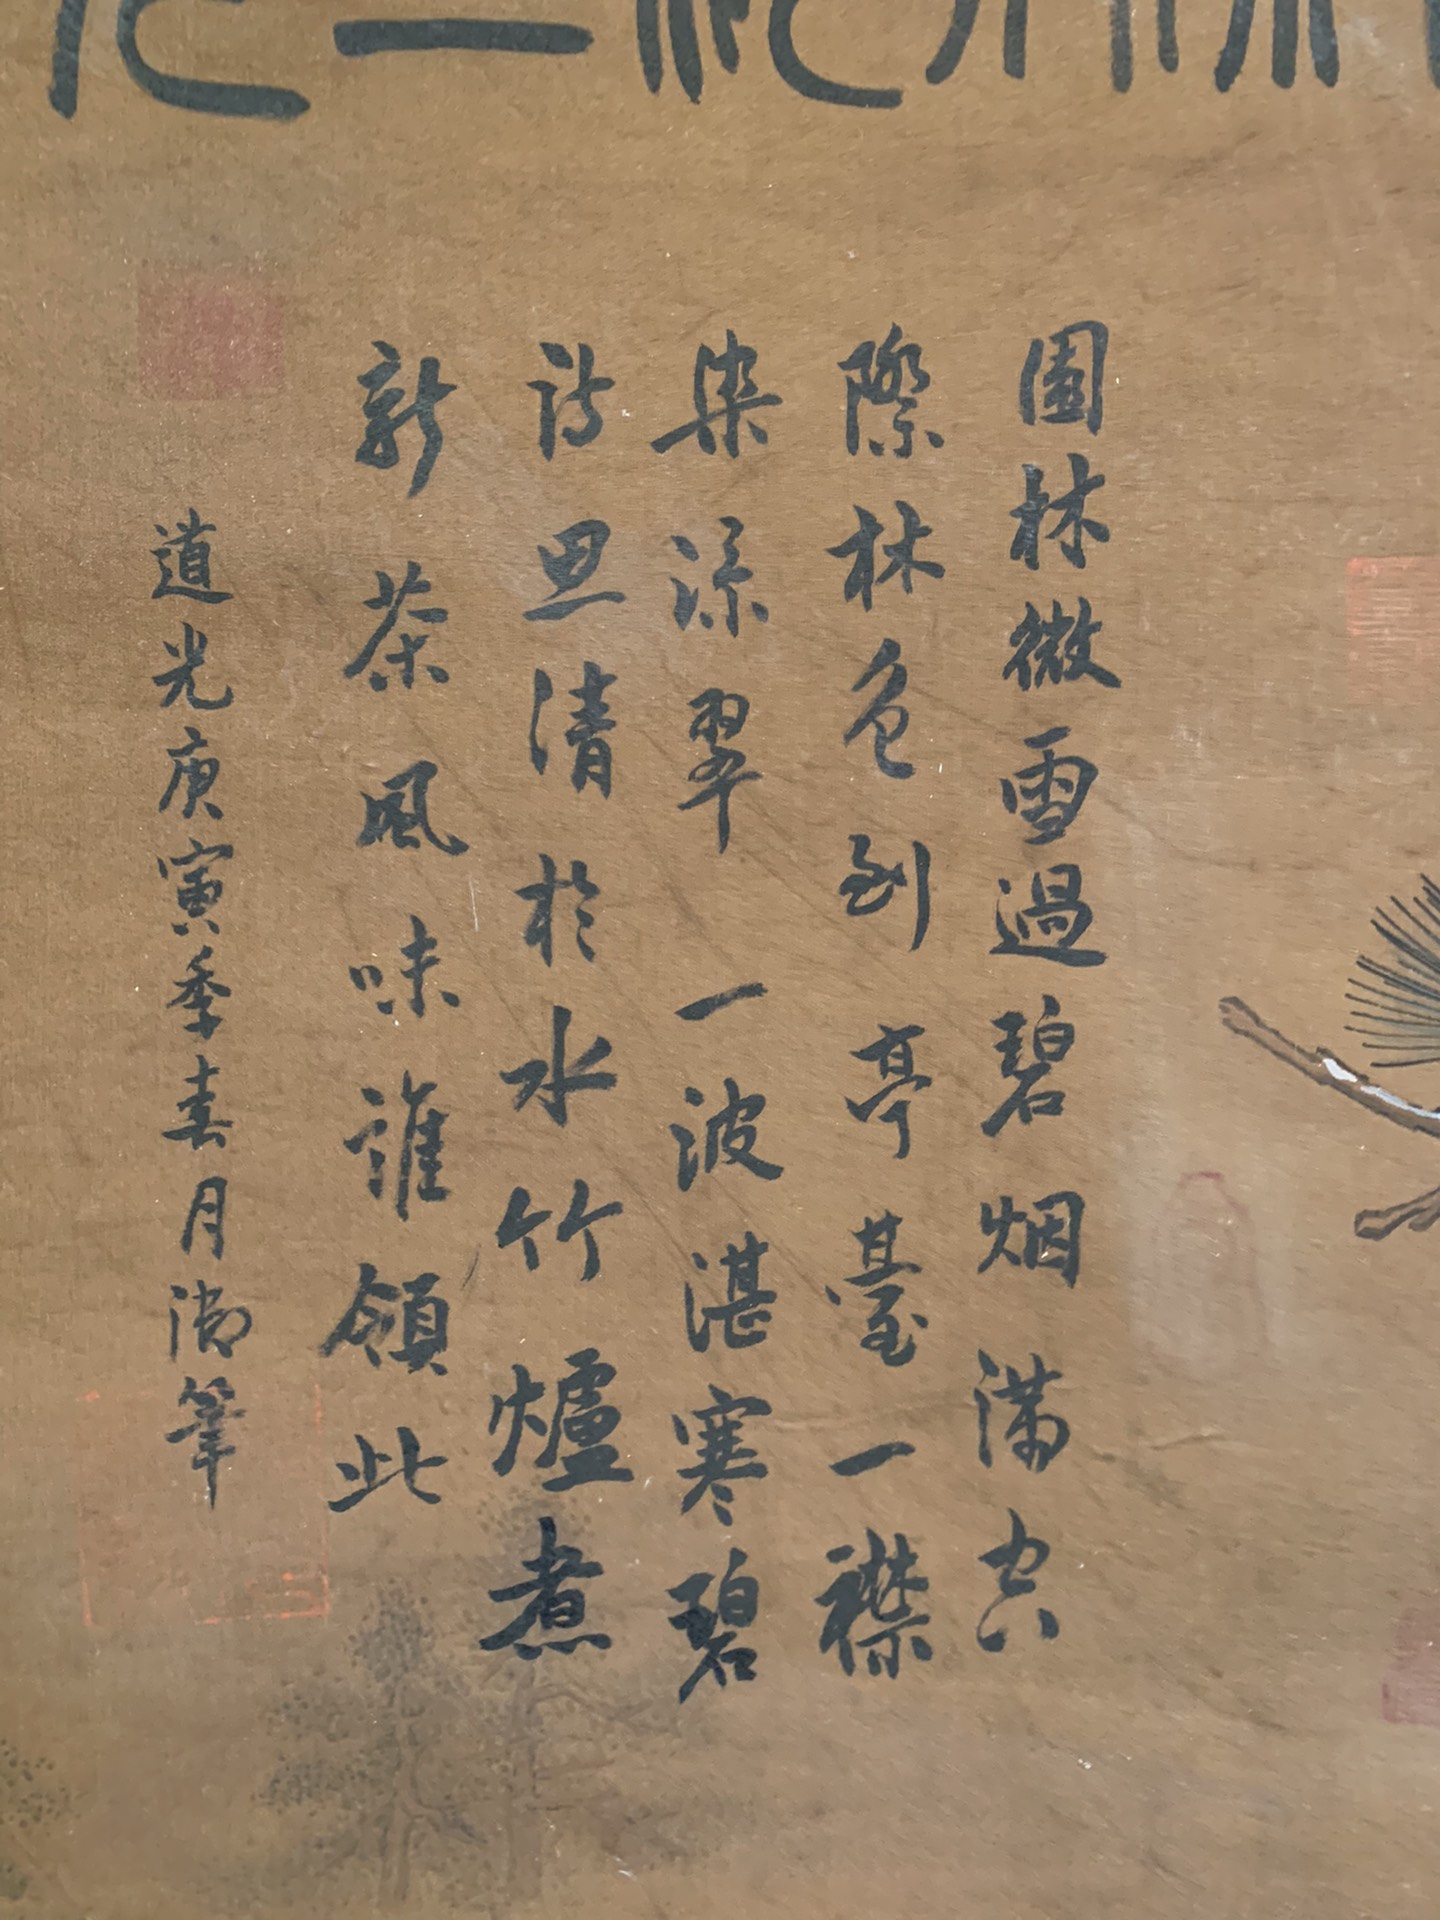 園林微雪過碧烟滿空
際林色到亭臺一襟
染深翠一波湛寒碧
詩思清於水竹爐煮
新茶風味誰領此
道光庚寅季春月御筆